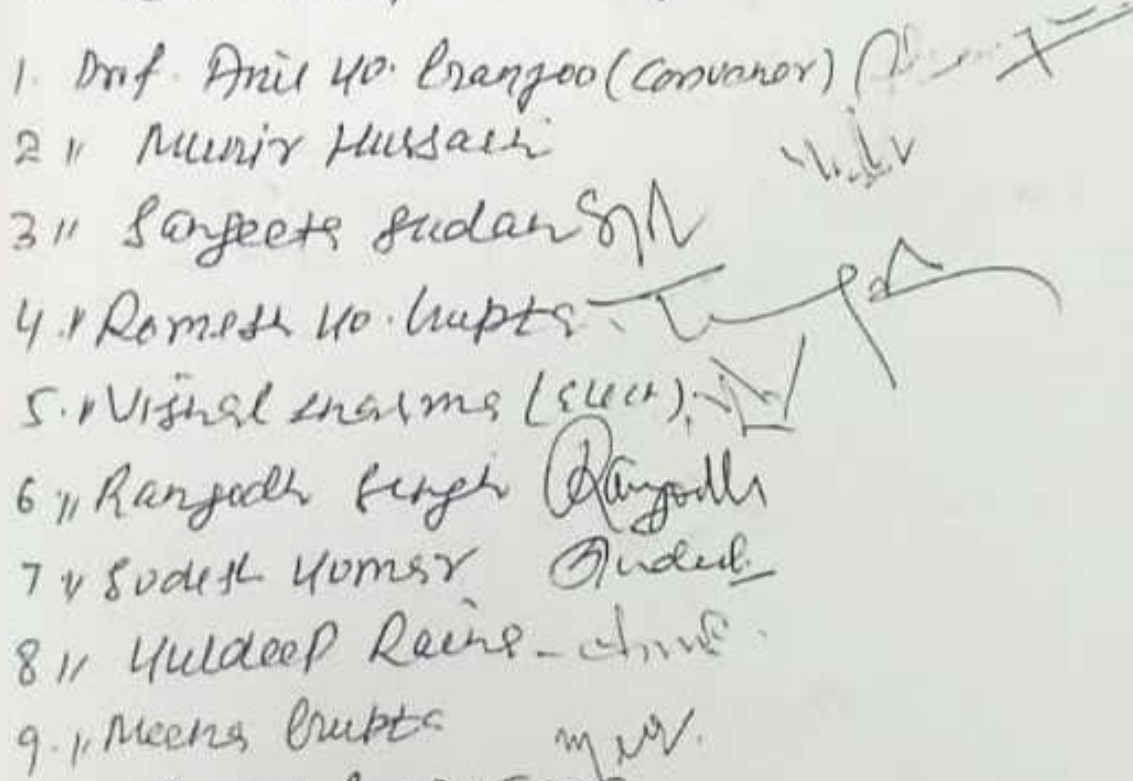 1. Prof. Anil Ko. Ganjoo (Convenor)
2 " Munir Hussain
3 " Sangeeta Sudan
4. " Ramesh Ko. Gupta
5. " Vishal Sharma (Elect)
6 " Ranjodh Singh Ranjodh
7 " Sudesh Kumar Sudesh
8 " Kuldeep Raina
9. " Meena Gupta